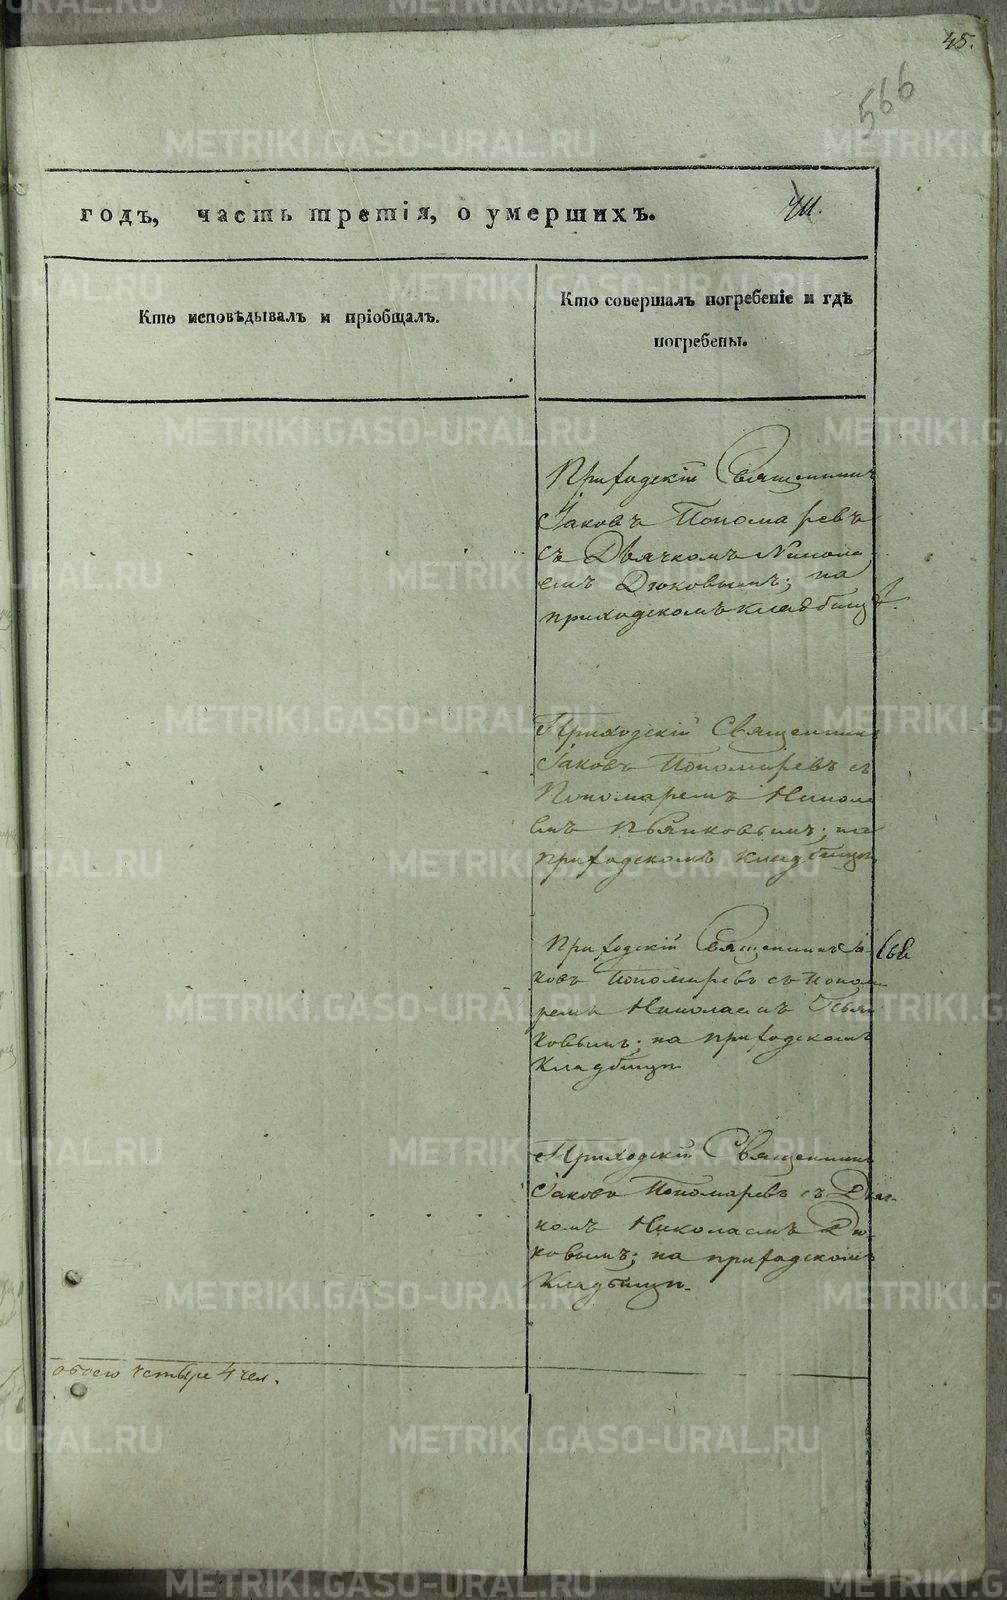 45.
566
годъ, часть третія, о умершихъ.
Кто исповѣдывалъ и пріобщалъ.
Кто совершалъ погребеніе и гдѣ
погребены.
Приходскій Священникъ
Іаковъ Пономаревъ
съ Дьячкомъ Никола
емъ Дюковымъ; на
приходскомъ кладбищѣ.
Приходскій Священникъ
Іаковъ Пономаревъ съ
Пономаремъ Никола
емъ Пьянковымъ; на
приходскомъ кладбищѣ
Приходскій Священникъ Іа
ковъ Пономаревъ съ Понома
ремъ Николаемъ Пьян
ковымъ; на приходскомъ
кладбищѣ
Приходскій Священникъ
Іаковъ Пономаревъ съ Дьяч-
комъ Николаемъ Дю
ковымъ; на приходскомъ
кладбищѣ.
обоего четыре 4 чел.
METRIKI.GASO-URAL.RU